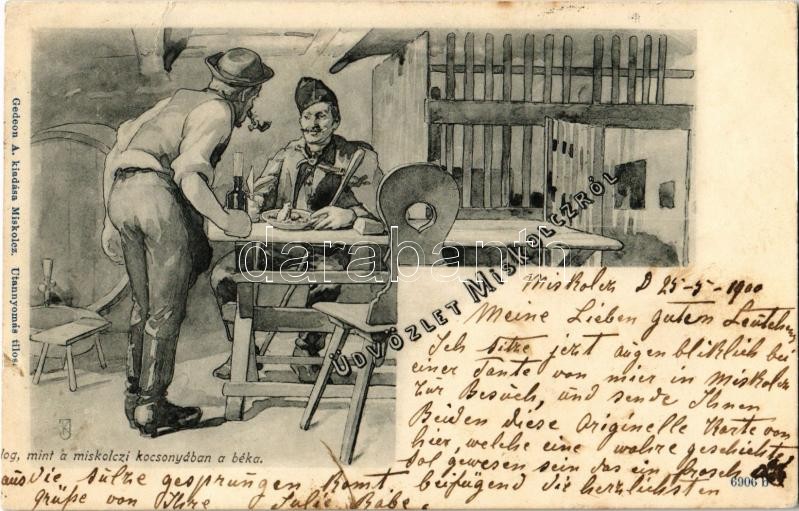 Gedeon A. kiadása Miskolcz. Utannyomás tilos.
ÜDVÖZLET MISKOLCZRÓL
darabanth
log, mint a miskolczi kocsonyában a béka.
Miskolcz D 25-5-1900
Meine Lieben guten Leutchen
Ich sitze jezt augenbliklich bei
einer Tante von mier in Miskolcz
zür Besuch, und sende Ihnen
Beiden diese Originelle Karte von
hier, welche eine wahre geschichte
sol gewesen sein das ein Frosch
aus die sülze gesprungen komt beifügend die herzlichsten
grüße von Ihre Julie Rabe.
6906 b